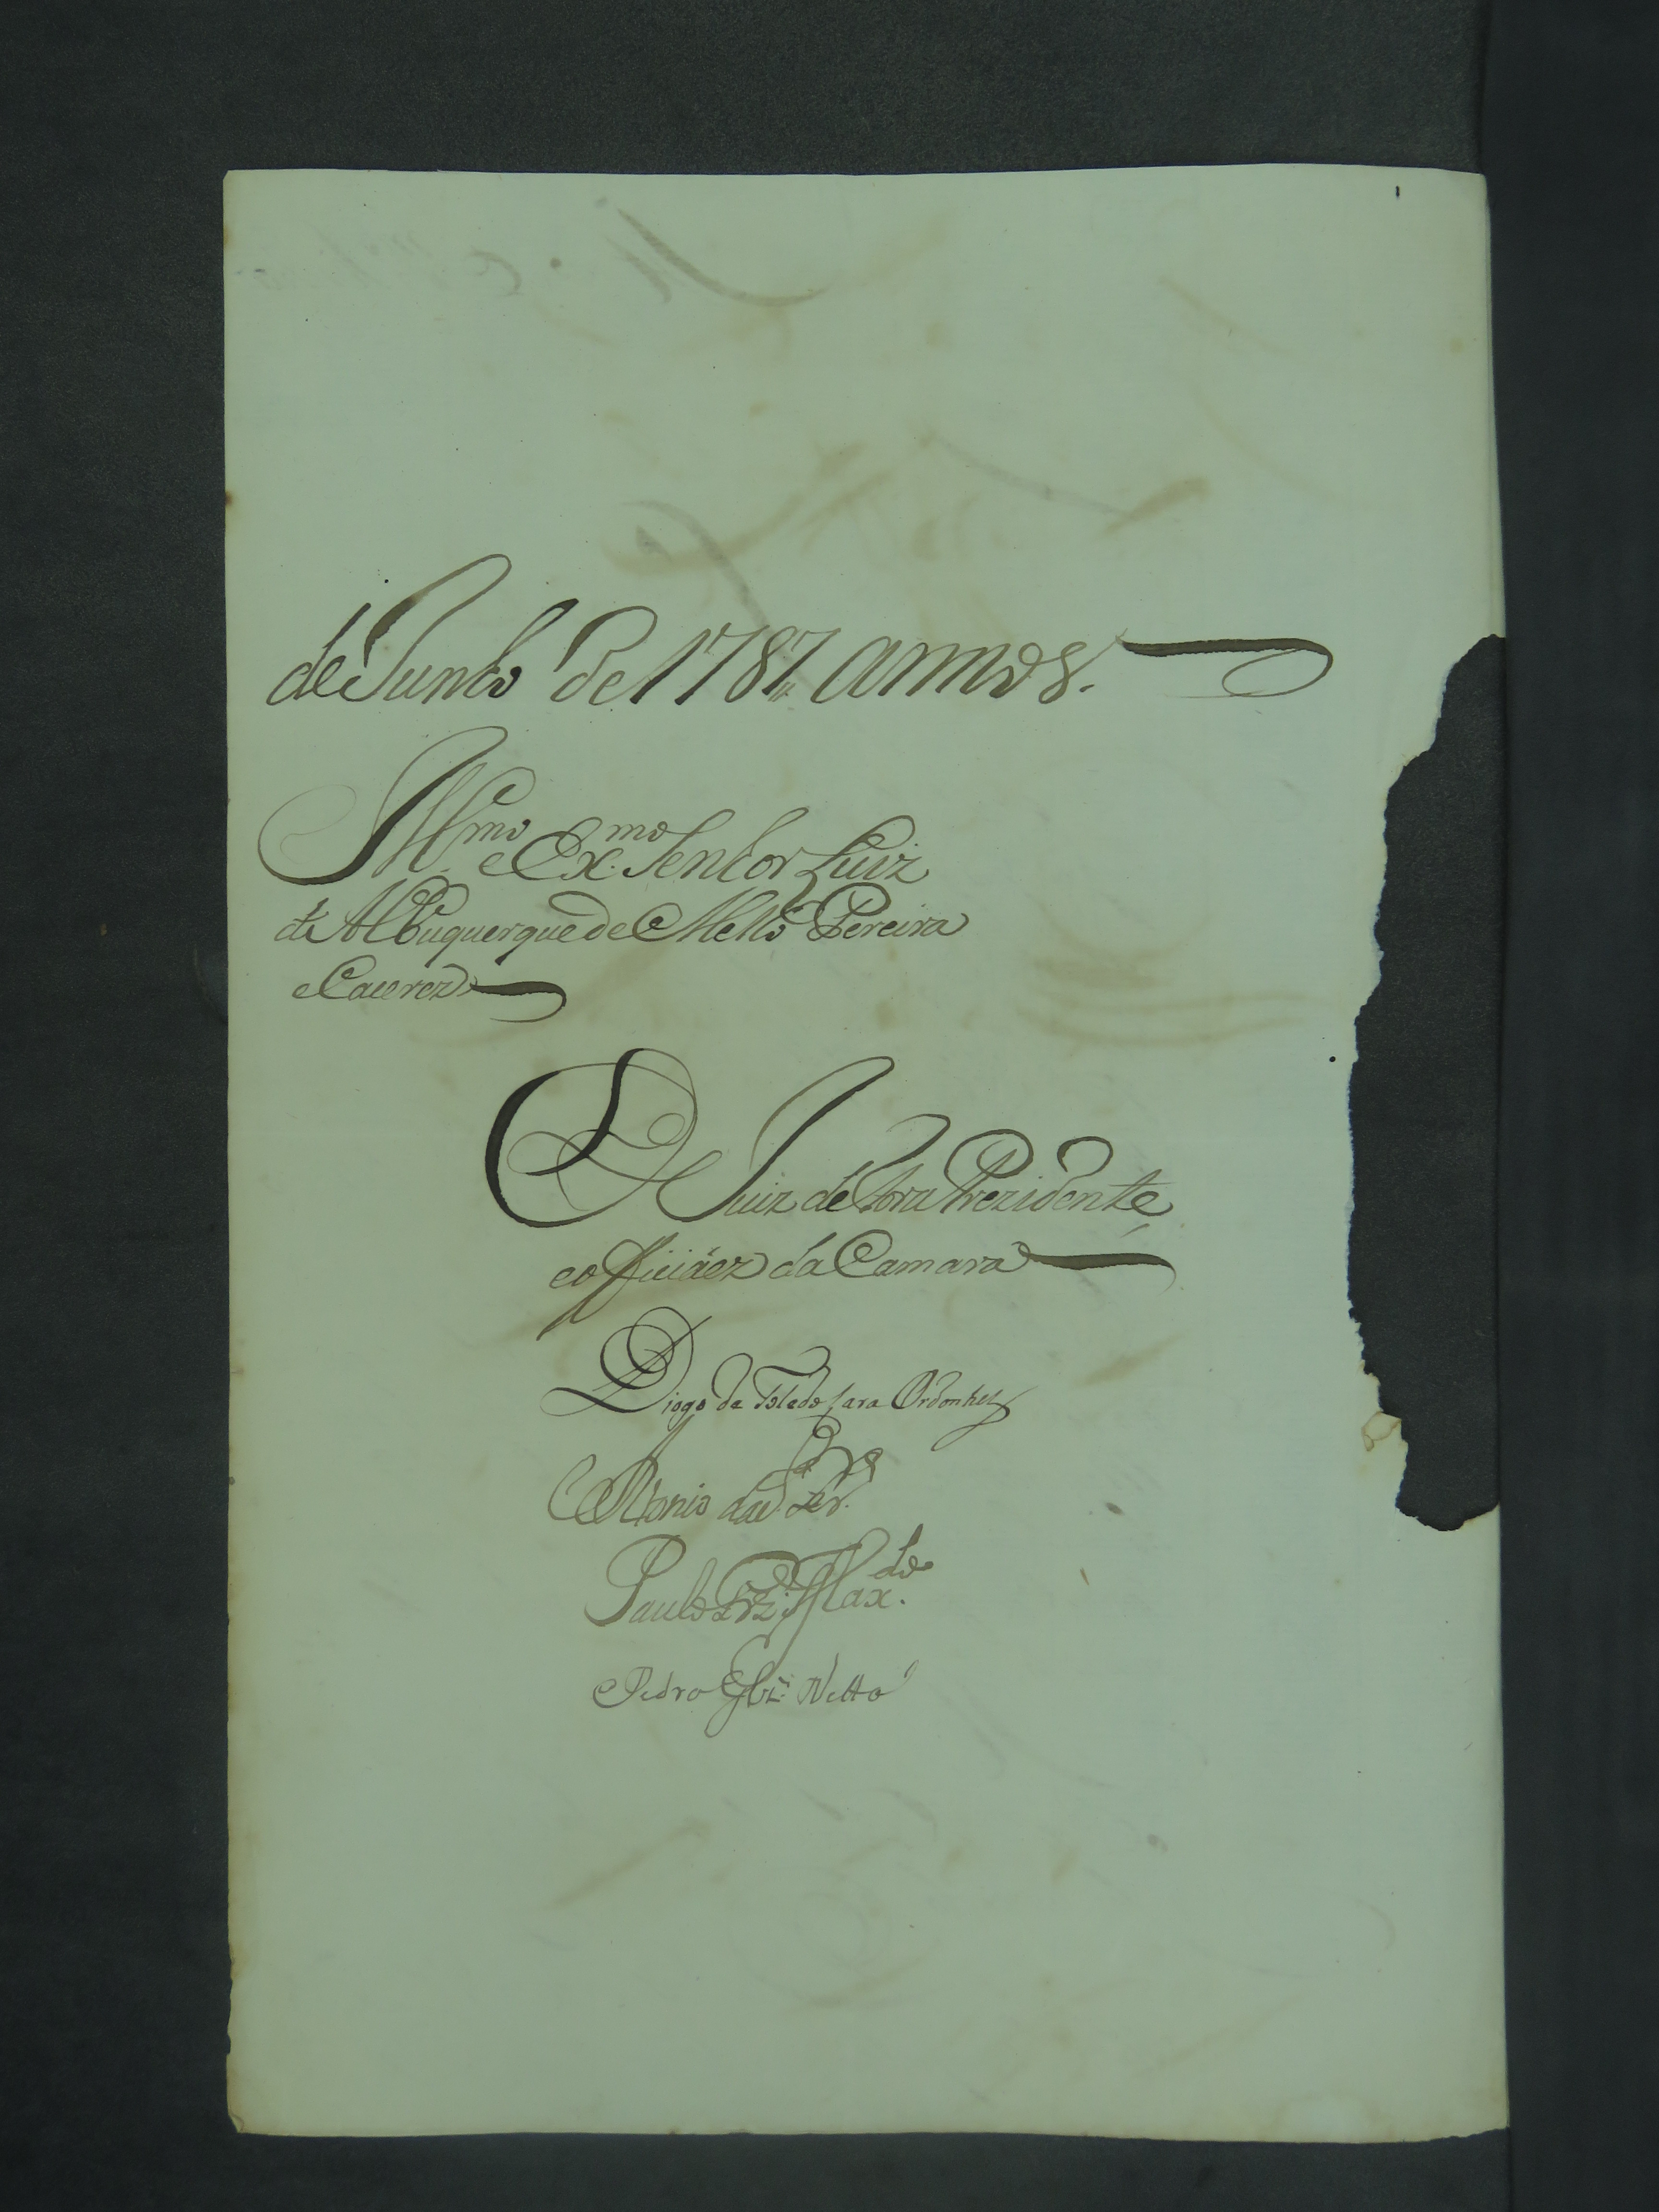 de Junho de 1787 annos.
Illmo e Exmo Senhor Luiz
de Albuquerque de Mello Pereira
e Cacerez
O Juiz de Fora Prezidente
e officiáez da Camara
Diogo de Toledo Lara Ordonhez
Antonio da
Paulo Frz. Maxdo.
Pedro Glz. Netto